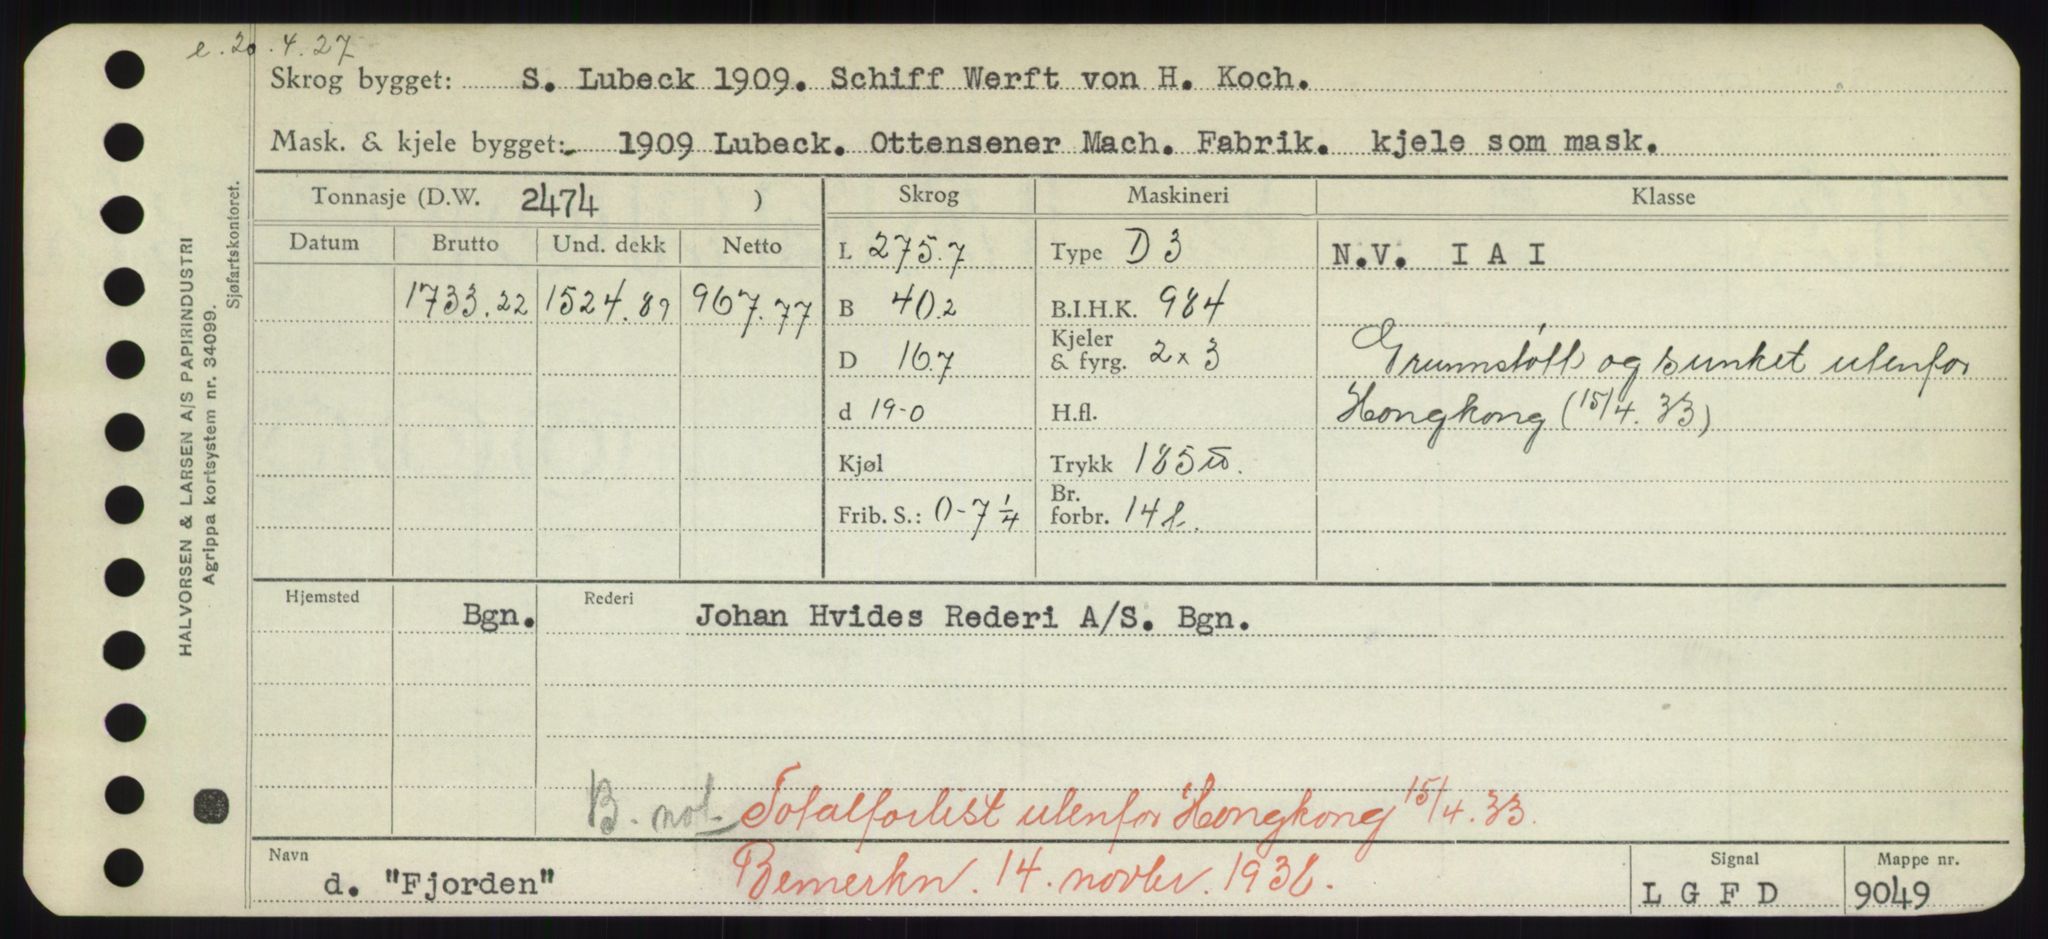 e. 20.4.27
Skrog bygget: S. Lubeck 1909. Schiff Werft von H. Koch.
Mask. & kjele bygget: 1909 Lubeck. Ottensener Mach. Fabrik. kjele som mask.
Tonnasje (D.W. 2474 ) Skrog Maskineri Klasse
Datum Brutto Und. dekk Netto L 275.7 Type D 3 N.V. I A I
1733.22 1524.89 967.77 B 40.2 B.I.H.K. 984
D 16.7 Kjeler & fyrg. 2 x 3 Grunnstøtt og sunket utenfor
d 19-0 H.fl. Hongkong (15/4. 33)
Kjøl Trykk 185
Frib. S.: 0-7 1/4 Br. forbr. 14 t.
Hjemsted Bgn. Rederi Johan Hvides Rederi A/S. Bgn.
B. not. Totalforlist utenfor Hongkong 15/4. 33.
Bemerkn. 14. novbr. 1936.
Navn d. "Fjorden" Signal L G F D Mappe nr. 9049
HALVORSEN & LARSEN A/S PAPIRINDUSTRI
Agrippa kortsystem nr. 34099.
Sjøfartskontoret.